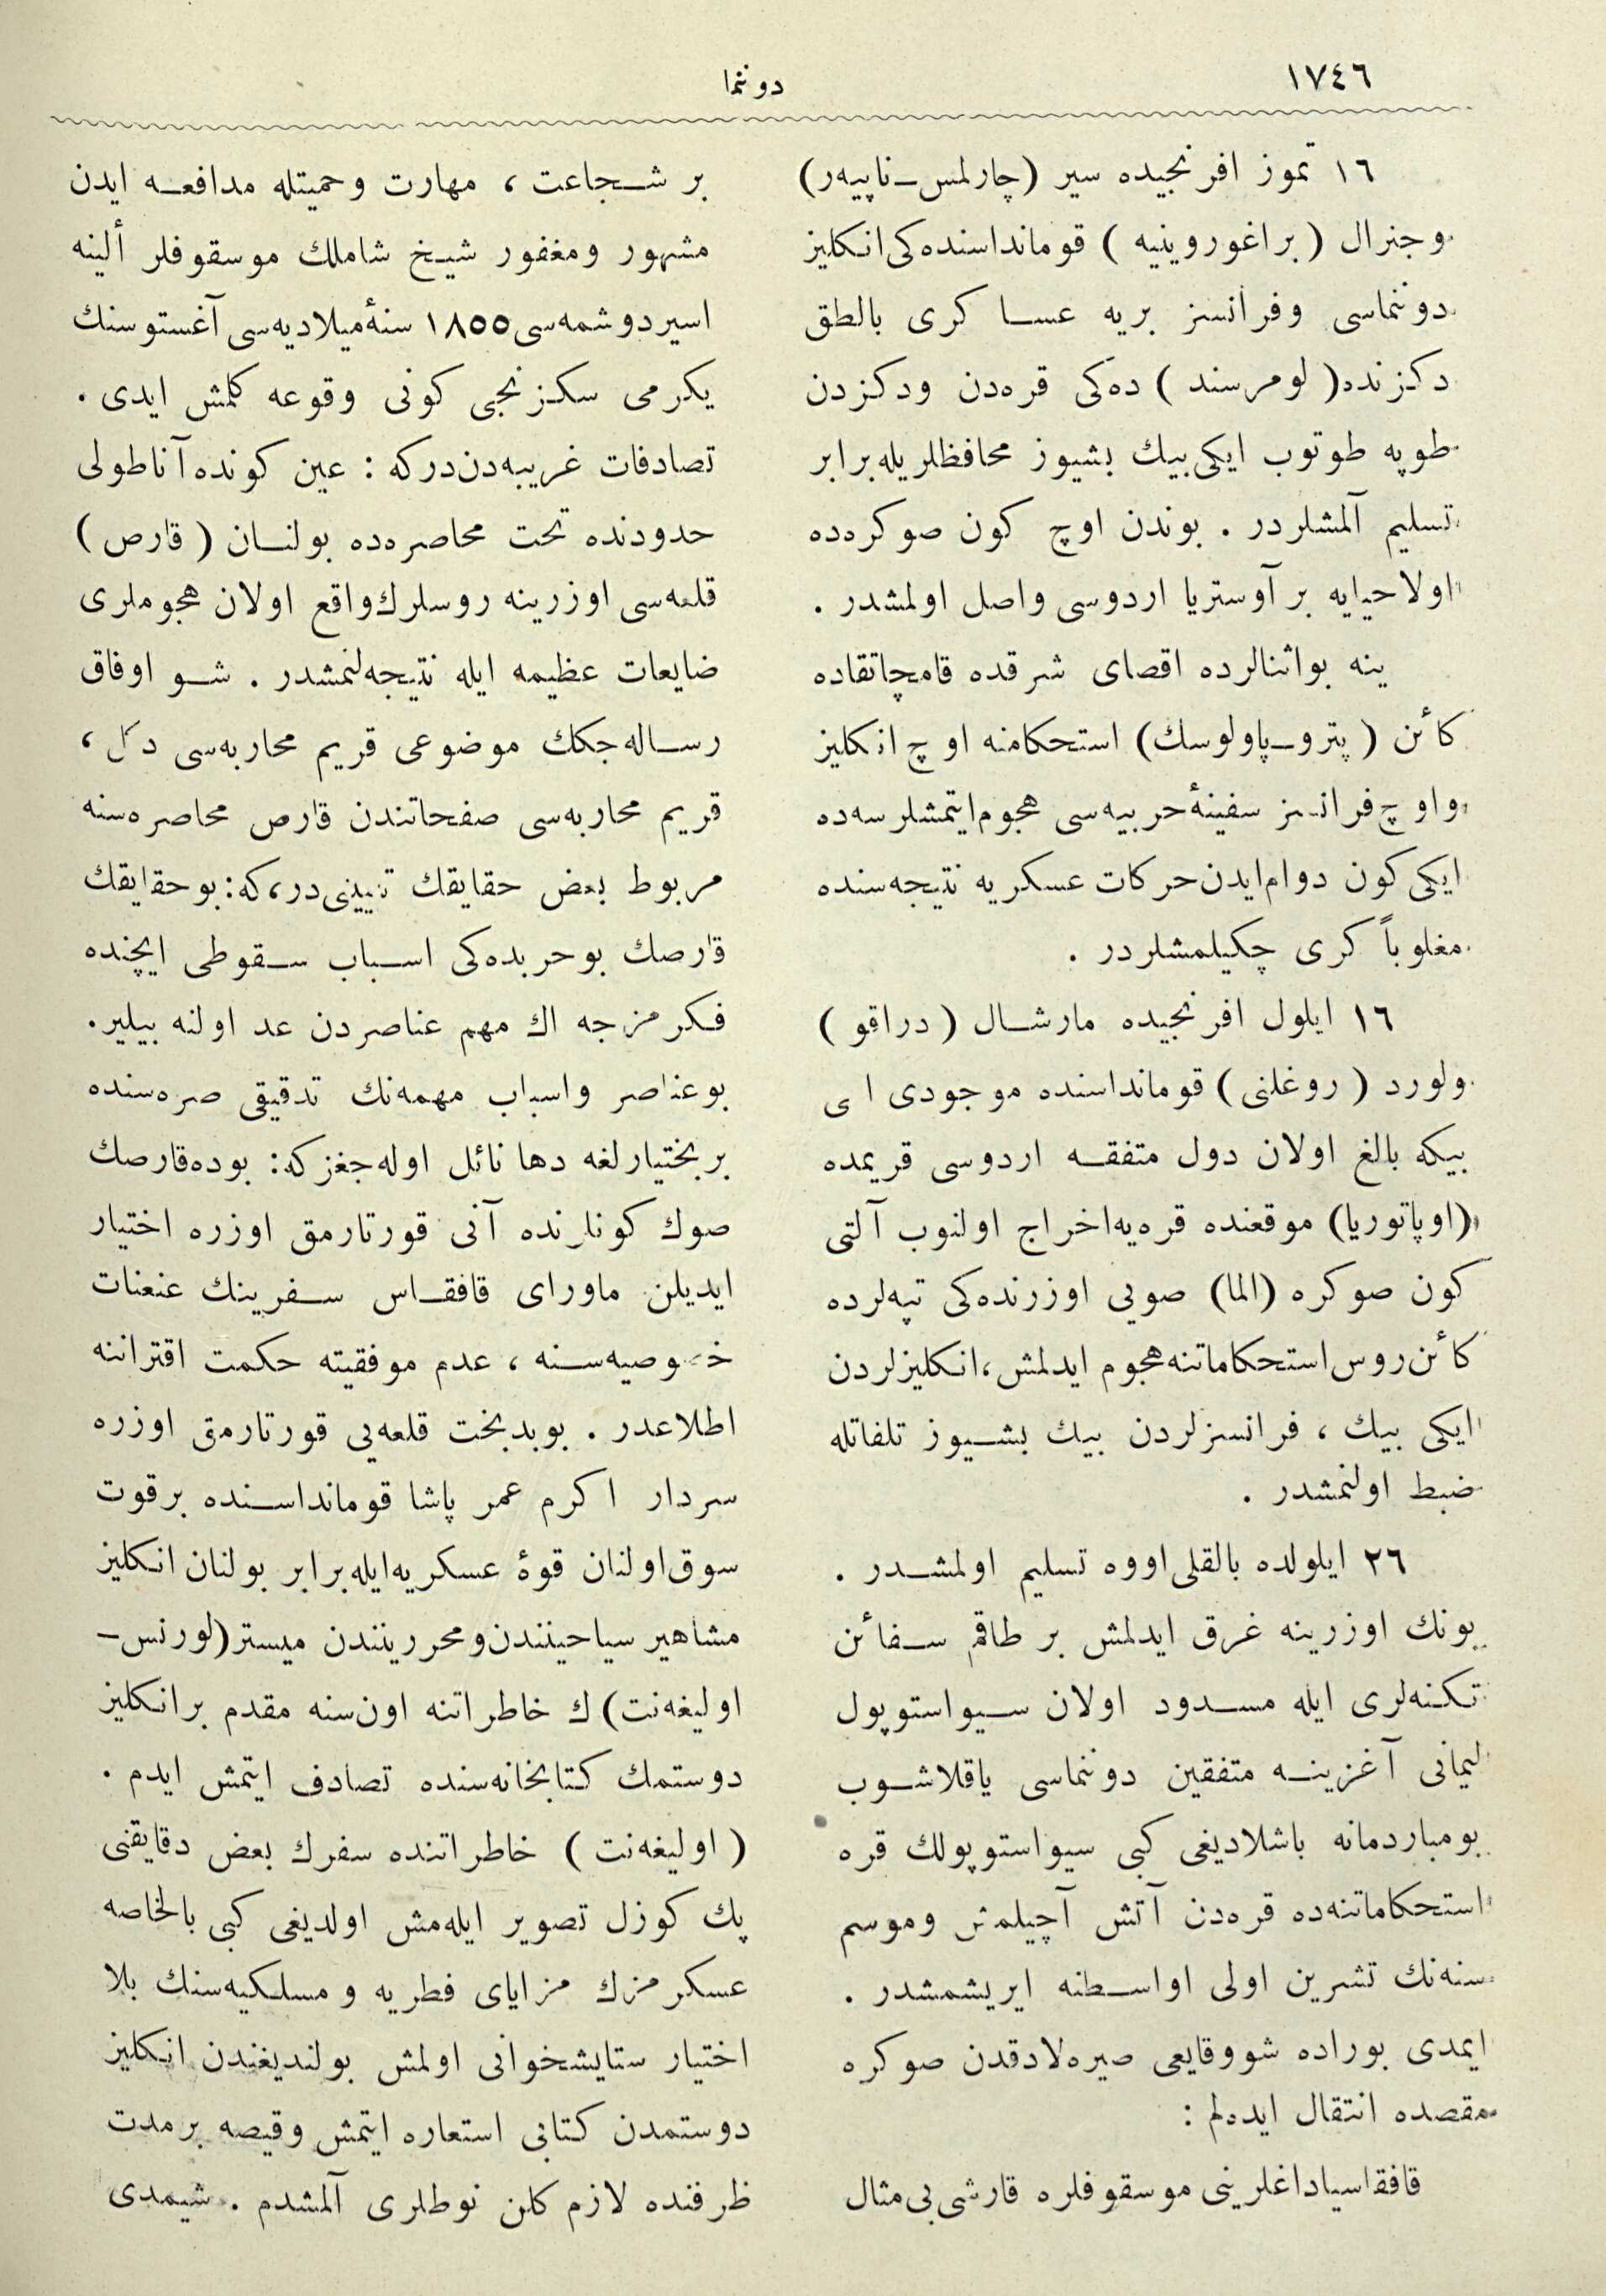 ١٧٤٦
دوننما
١٦ تموز افرنجیده سیر (چارلس ـ ناپیه‌ر)
وجنرال ( براغوروینیه ) قومانداسنده‌کی انکلیز
دوننماسی وفرانسز بریه عساکری بالطق
دکزنده ( لومرسند ) ده‌کی قره‌دن ودکزدن
طوپه طوتوب ایکی بیك بشیوز محافظلریله برابر
تسلیم آلمشلردر . بوندن اوچ کون صوکره‌ده
اولاحیایه بر آوستریا اردوسی واصل اولمشدر .
ینه بواثنالرده اقصای شرقده قامچاتقاده
کائن ( پترو ـ پاولوسك ) استحکامنه اوچ انکلیز
واوچ فرانسز سفینهٔ حربیه‌سی هجوم ایتمشلرسه‌ده
ایکی کون دوام ایدن حرکات عسکریه نتیجه‌سنده
مغلوباً کری چکیلمشلردر .
١٦ ایلول افرنجیده مارشال ( دراقو )
ولورد ( روغلنی ) قومانداسنده موجودی
بیکه بالغ اولان دول متفقه اردوسی قریمده
(اوپاتوریا) موقعنده قره‌یه اخراج اولنوب آلتی
کون صوکره (الما) صویی اوزرنده‌کی تپه‌لرده
کائن روس استحکاماتنه هجوم ایدلمش ، انکلیزلردن
ایکی بیك ، فرانسزلردن بیك بشیوز تلفاتله
ضبط اولنمشدر .
٢٦ ایلولده بالقلی اووه تسلیم اولمشدر .
بونك اوزرینه غرق ایدلمش بر طاقم سفائن
تکنه‌لری ایله مسدود اولان سیواستوپول
لیمانی آغزینه متفقین دوننماسی یاقلاشوب
بومباردمانه باشلادیغی کبی سیواستوپولك قره
استحکاماتنه‌ده قره‌دن آتش آچیلمش وموسم
سنه‌نك تشرین اولی اواسطنه ایریشمشدر .
ایمدی بوراده شووقایعی صیره‌لادقدن صوکره
مقصده انتقال ایده‌لم :
قافقاسیا داغلرینی موسقوفلره قارشی بی مثال
بر شجاعت ، مهارت وحمیتله مدافعه ایدن
مشهور ومغفور شیخ شاملك موسقوفلر ألینه
اسیر دوشمه‌سی ١٨٥٥ سنهٔ میلادیه‌سی آغستوسنك
یکرمی سکزنجی کونی وقوعه کلمش ایدی .
تصادفات غریبه‌دن‌درکه : عین کونده آناطولی
حدودنده تحت محاصره‌ده بولنان ( قارص )
قلعه‌سی اوزرینه روسلرك واقع اولان هجوملری
ضایعات عظیمه ایله نتیجه‌لنمشدر . شو اوفاق
رساله‌جکك موضوعی قریم محاربه‌سی دکل ،
قریم محاربه‌سی صفحاتندن قارص محاصره‌سنه
مربوط بعض حقایقك تبیینی‌در ، که : بوحقایقك
قارصك بوحربده‌کی اسباب سقوطی ایچنده
فکرمزجه اك مهم عناصردن عد اولنه بیلیر .
بوعناصر واسباب مهمه‌نك تدقیقی صره‌سنده
بربختیارلغه دها نائل اوله‌جغزکه : بوده قارصك
صوك کونلرنده آنی قورتارمق اوزره اختیار
ایدیلن ماورای قافقاس سفرینك عنعنات
خصوصیه‌سنه ، عدم موفقیته حکمت اقتراننه
اطلاعدر . بوبدبخت قلعه‌یی قورتارمق اوزره
سردار اکرم عمر پاشا قومانداسنده برقوت
سوق اولنان قوهٔ عسکریه ایله برابر بولنان انکلیز
مشاهیر سیاحیننندن ومحرریننندن میستر (لورنس ـ
اولیغه‌نت) ك خاطراتنه اون سنه مقدم برانکلیز
دوستمك کتابخانه‌سنده تصادف ایتمش ایدم .
( اولیغه‌نت ) خاطراتنده سفرك بعض دقایقنی
پك کوزل تصویر ایله‌مش اولدیغی کبی بالخاصه
عسکرمزك مزایای فطریه و مسلکیه‌سنك بلا
اختیار ستایشخوانی اولمش بولندیغندن انکلیز
دوستمدن کتابی استعاره ایتمش وقیصه برمدت
ظرفنده لازم کلن نوطلری آلمشدم . شیمدی